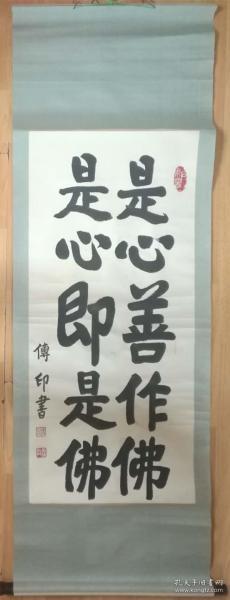 是心善作佛
是心即是佛
傅印書
孔夫子旧书网
www.kongfz.com